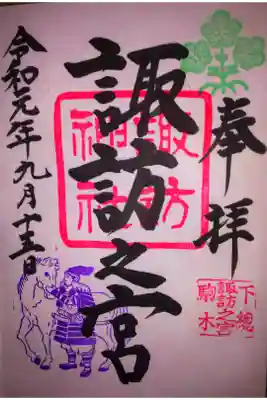 奉拝
諏訪之宮
諏訪
神社
令和元年九月十五日
下総
諏訪之宮
駒木